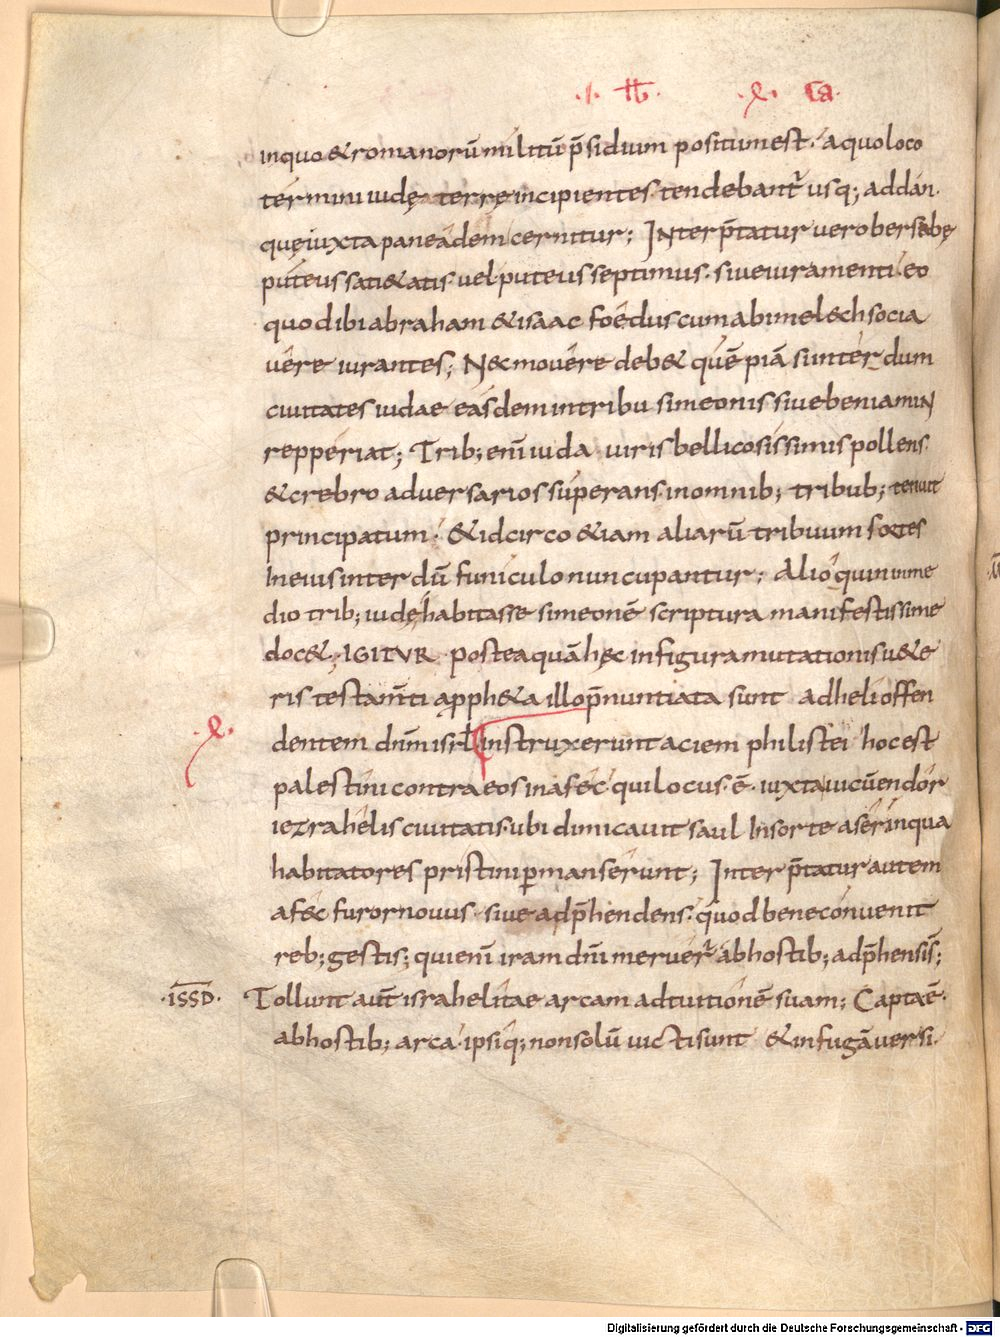 in quo & romanorū militū p̄sidium positum est. a quo loco
termini iudę terrę incipientes tendebant᷑ usq; ad dan.
quę iuxta paneadem cernitur; INterp̄tatur uero bersabeę
puteus sati&atis uel puteus septimus. siue iuramenti. eo
quod ibi abraham & isaac foedus cum abimelech socia
uere iurantes; Nec mouere deb& quēpiā si interdum
ciuitates iudae easdem in tribu simeonis siue beniamiN
repperiat; Trib; enī iuda uiris bellicosissimis pollens
& crebro aduersarios superans in omnib; tribub; tenuit
principatum. & idcirco &iam aliarū tribuum sortes
In eius inter dū funiculo nuncupantur; Alioquin in me
dio trib; iudę habitasse simeonē scriptura manifestissime
doc&; IGITVR posteaquā hęc in figura mutationis u&e
ris testam̄ti a pph&a illo p̄nuntiata sunt ad heli offen
.&. dentem dnm̄ isrl̄ instruxerunt aciem philistei hoc est
palestini contra eos in afec. qui locus ē. iuxta uicū endor
iezrahelis ciuitatis. ubi dimicauit saul In sorte aser in qua
habitatores pristini p̱manserunt; Interp̄tatur autem
afec furor nouus. siue adp̄hendens. quod bene conuenit
reb; gestis; qui enī iram dnī meruer᷑ ab hostib; adp̄hensis;
.ISSD. Tollunt aūt israhelitae arcam ad tuitionē suam; Capta ē.
ab hostib; arca. ipsiq; non solū uicti sunt & in fugā uersi.
Digitalisierung gefördert durch die Deutsche Forschungsgemeinschaft - DFG